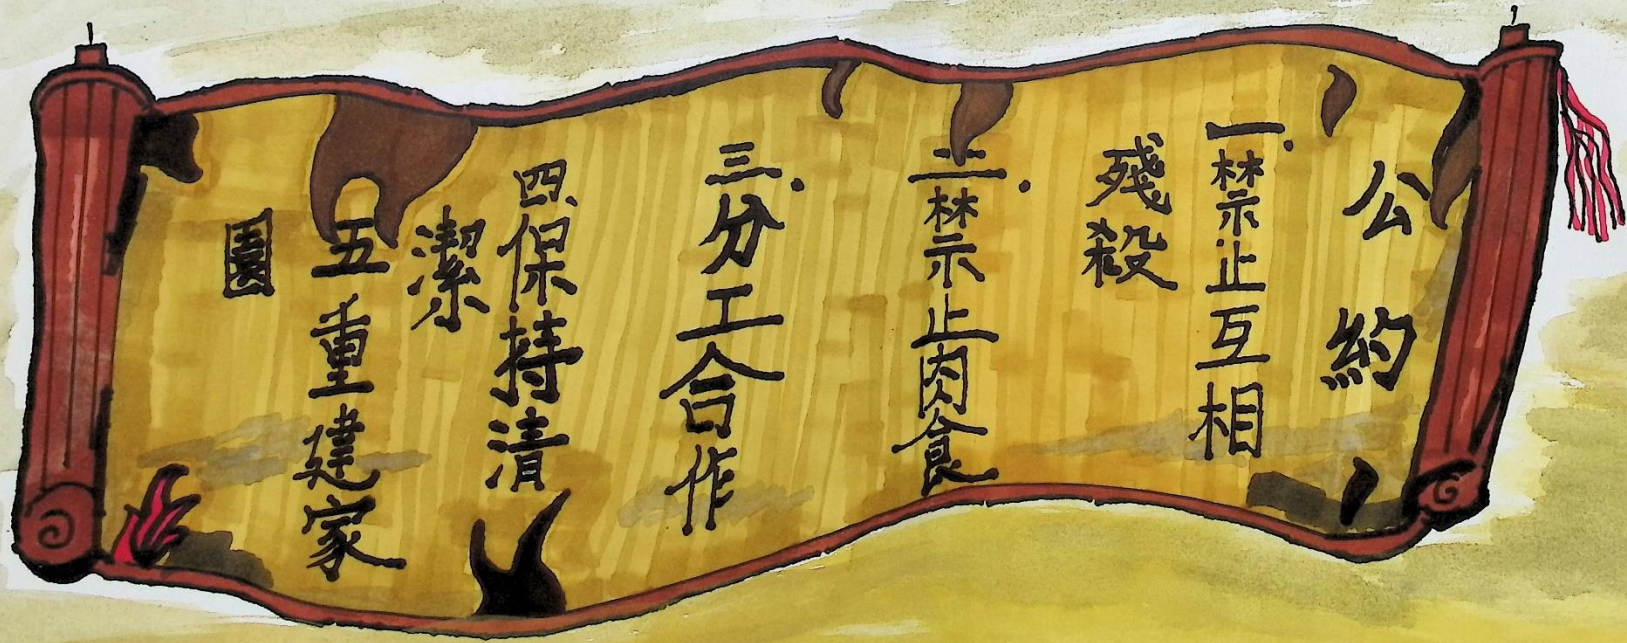 公約
一.禁止互相
殘殺
二.禁止肉食
三.分工合作
四.保持清
潔
五重建家
園